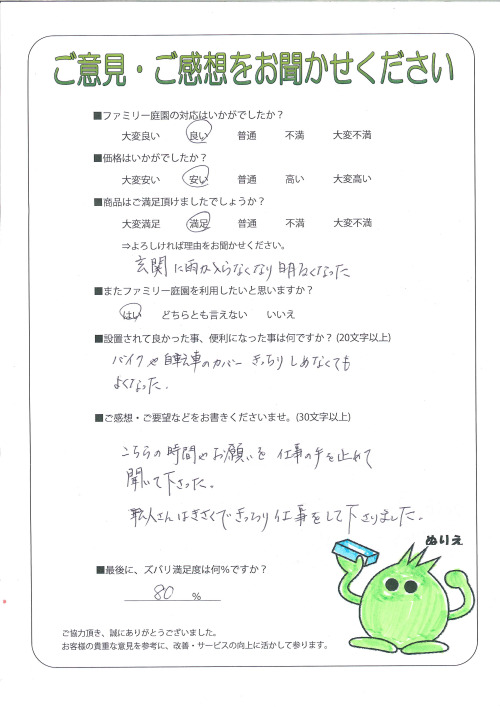 ご意見・ご感想をお聞かせください
■ファミリー庭園の対応はいかがでしたか?
大変良い 良い 普通 不満 大変不満
■価格はいかがでしたか?
大変安い 安い 普通 高い 大変高い
■商品はご満足頂けましたでしょうか?
大変満足 満足 普通 不満 大変不満
⇒よろしければ理由をお聞かせください。
玄関に雨が入らなくなり明るくなった
■またファミリー庭園を利用したいと思いますか?
はい どちらとも言えない いいえ
■設置されて良かった事、便利になった事は何ですか? (20文字以上)
バイクや自転車のカバー きっちりしめなくても
よくなった.
■ご感想・ご要望などをお書きくださいませ。(30文字以上)
こちらの時間やお願いを仕事の手を止めて
聞いて下さった.
職人さんはきさくできっちり仕事をして下さいました.
ぬりえ
■最後に、ズバリ満足度は何%ですか?
80 %
ご協力頂き、誠にありがとうございました。
お客様の貴重な意見を参考に、改善・サービスの向上に活かして参ります。